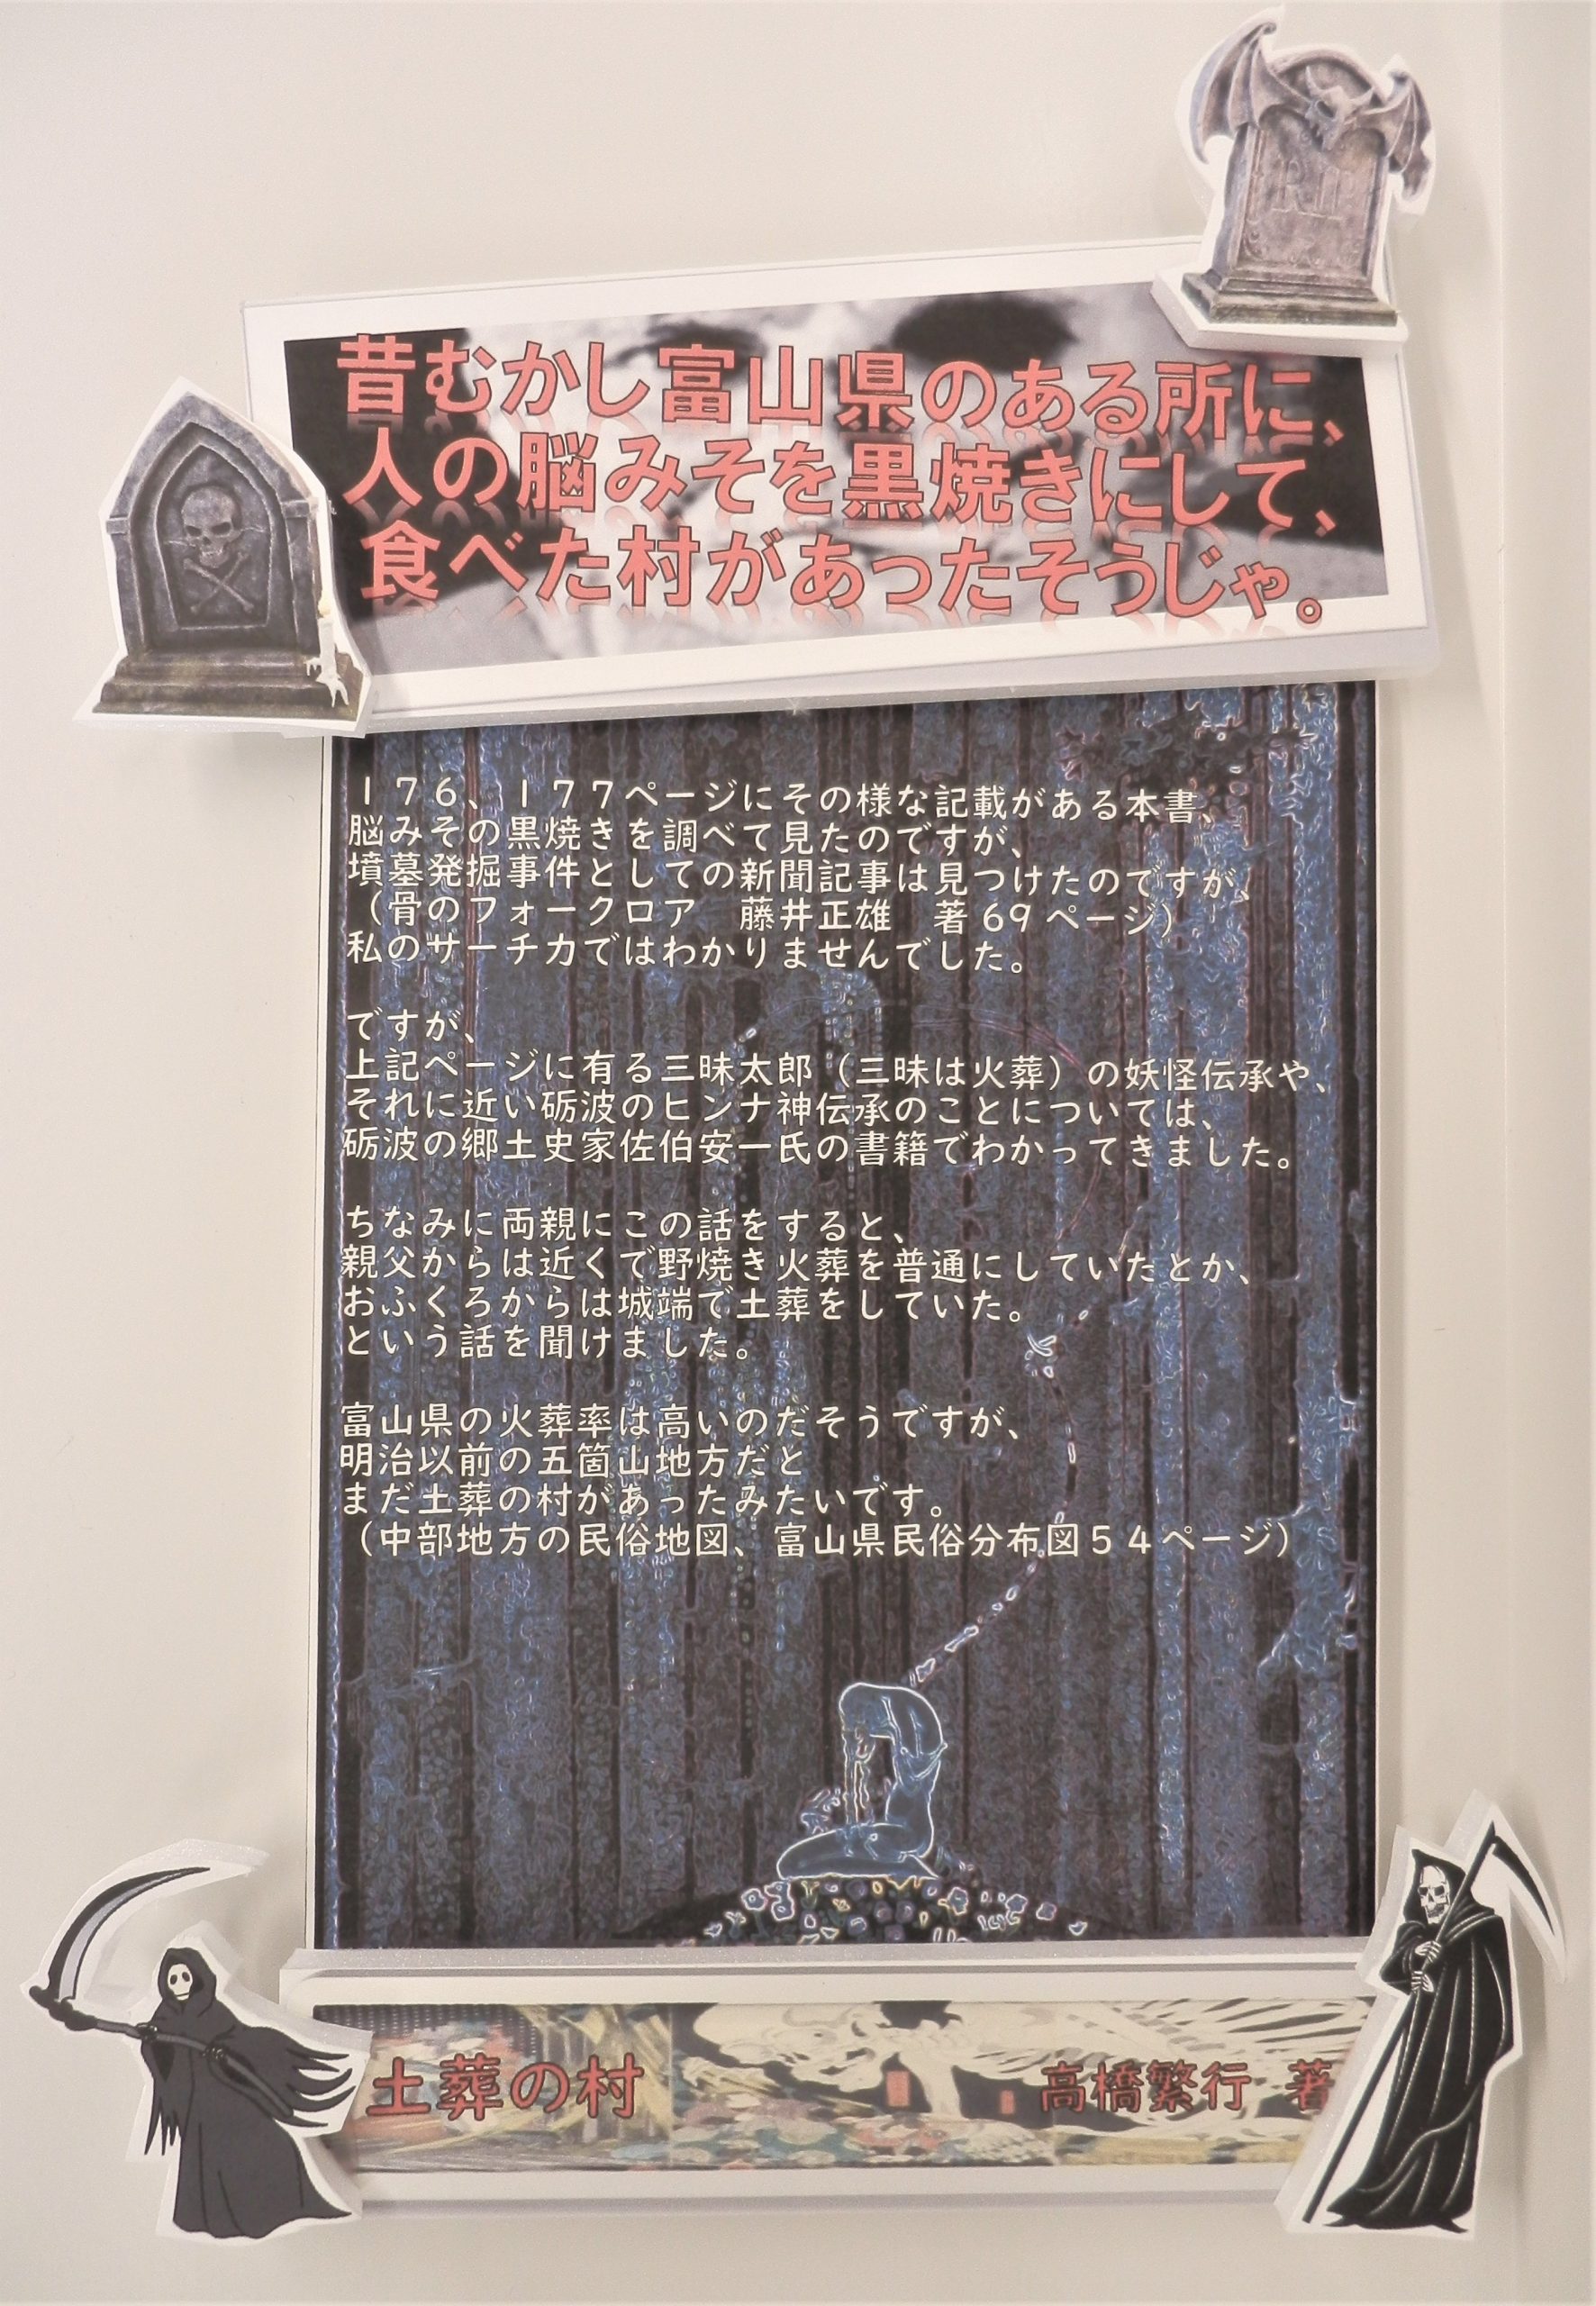 昔むかし富山県のある所に、
人の脳みそを黒焼きにして、
食べた村があったそうじゃ。
１７６、１７７ページにその様な記載がある本書、
脳みその黒焼きを調べて見たのですが、
墳墓発掘事件としての新聞記事は見つけたのですが、
（骨のフォークロア　藤井正雄　著６９ページ）
私のサーチカではわかりませんでした。
ですが、
上記ページに有る三昧太郎（三昧は火葬）の妖怪伝承や、
それに近い砺波のヒンナ神伝承のことについては、
砺波の郷土史家佐伯安一氏の書籍でわかってきました。
ちなみに両親にこの話をすると、
親父からは近くで野焼き火葬を普通にしていたとか、
おふくろからは城端で土葬をしていた。
という話を聞けました。
富山県の火葬率は高いのだそうですが、
明治以前の五箇山地方だと
まだ土葬の村があったみたいです。
（中部地方の民俗地図、富山県民俗分布図５４ページ）
土葬の村　高橋繁行　著